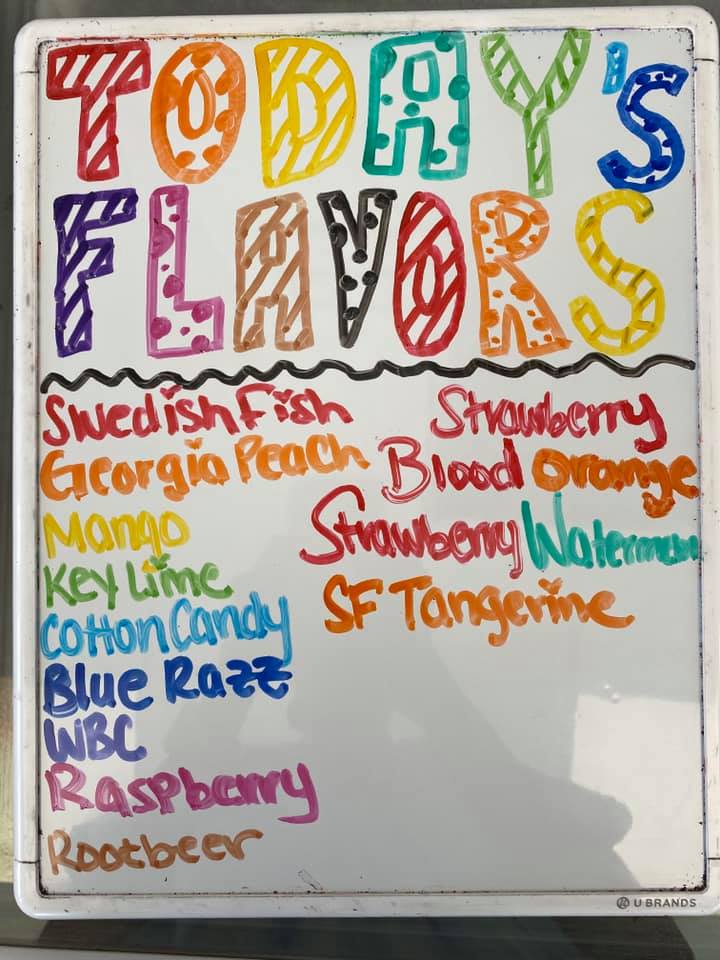 TODAY'S
FLAVORS
Swedish Fish
Georgia Peach
Mango
Key Lime
Cotton Candy
Blue Razz
WBC
Raspberry
Rootbeer
Strawberry
Blood Orange
Strawberry
SF Tangerine
U BRANDS